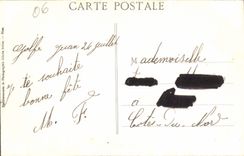 06
CARTE POSTALE
Golfe Juan 26 juillet
Mademoiselle
je te souhaite
bonne fête
à
M. F.
Côtes-du-Nord